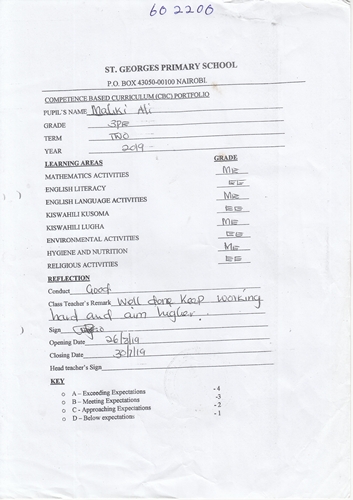 602206
ST. GEORGES PRIMARY SCHOOL
P.O. BOX 43050-00100 NAIROBI.
COMPETENCE BASED CURRICULUM (CBC) PORTFOLIO
PUPIL'S NAME Maliki Ali
GRADE 3PE
TERM TWO
YEAR 2019
LEARNING AREAS GRADE
MATHEMATICS ACTIVITIES ME
ENGLISH LITERACY EE
ENGLISH LANGUAGE ACTIVITIES ME
KISWAHILI KUSOMA EE
KISWAHILI LUGHA ME
ENVIRONMENTAL ACTIVITIES EE
HYGIENE AND NUTRITION ME
RELIGIOUS ACTIVITIES EE
REFLECTION
Conduct Good
Class Teacher's Remark Well done keep working
hard and aim higher.
Sign
Opening Date 26/8/19
Closing Date 30/7/19
Head teacher's Sign
KEY
o A – Exceeding Expectations - 4
o B – Meeting Expectations -3
o C - Approaching Expectations - 2
o D – Below expectations - 1